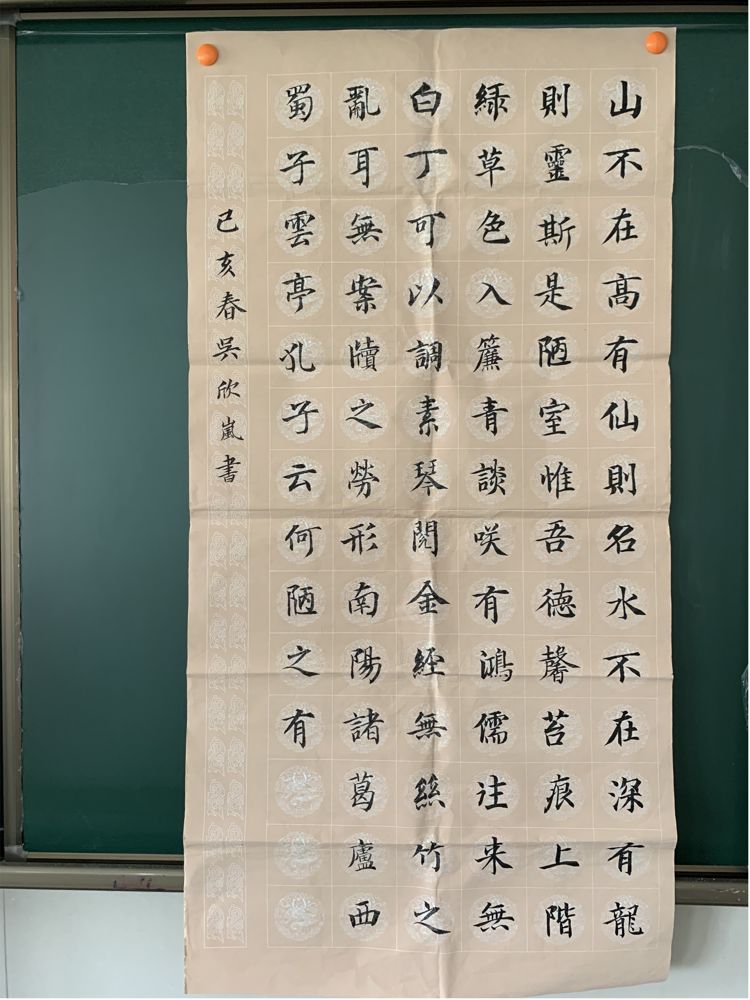 山不在高有仙則名水不在深有龍
則靈斯是陋室惟吾德馨苔痕上階
綠草色入簾青談咲有鴻儒往来無
白丁可以調素琴閱金經無絲竹之
亂耳無案牘之勞形南陽諸葛廬西
蜀子雲亭孔子云何陋之有
己亥春吳欣嵐書